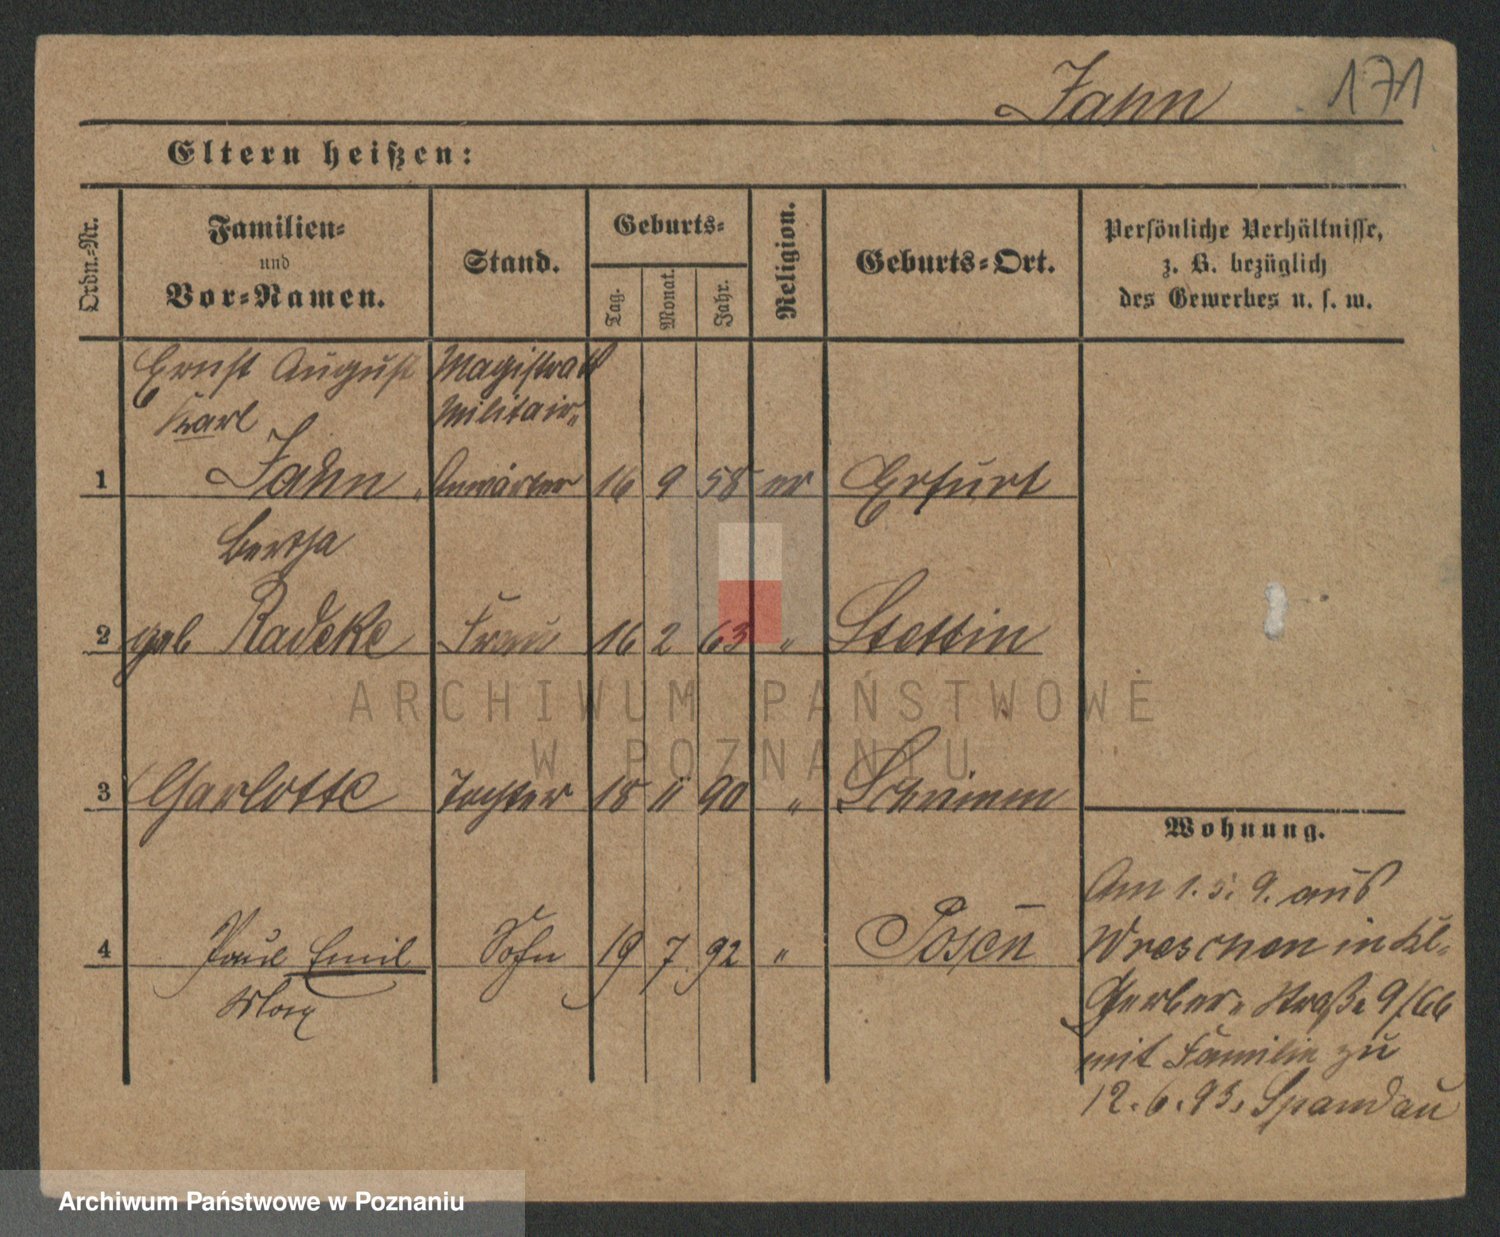 Jahn 171
Eltern heißen:
Ordn.-Nr.
Familien-
und
Vor-Namen.
Stand.
Geburts-
Tag.
Monat.
Jahr.
Religion.
Geburts-Ort.
Persönliche Verhältnisse,
z. B. bezüglich
des Gewerbes u. s. w.
Ernst August Magistrat
Karl Militair-
1 Jahn Anwärter 16 9 58 ev Erfurt
Bertha
2 geb Radeke Frau 16 2 63 " Stettin
ARCHIWUM PAŃSTWOWE
W POZNANIU
3 Charlotte Tochter 18 11 90 " Schrimm
Wohnung.
4 Paul Emil Sohn 19 7 92 " Posen
Max
Am 1. 5. 9. aus
Wreschen in Kl.
Gerber-Straße 9/66
mit Familie zu
12. 6. 93. Spandau
Archiwum Państwowe w Poznaniu